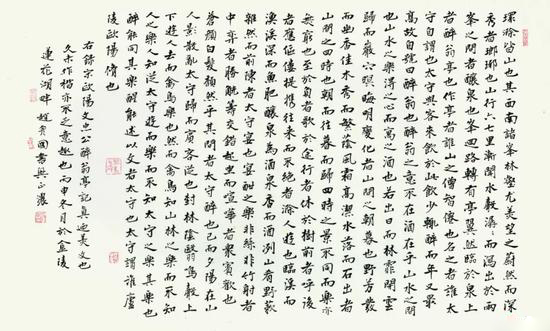 環滁皆山也其西南諸峯林壑尤美望之蔚然而深
秀者瑯琊也山行六七里漸聞水聲潺潺而瀉出於兩
峯之間者釀泉也峯回路轉有亭翼然臨於泉上
者醉翁亭也作亭者誰山之僧智僊也名之者誰太
守自謂也太守與客來飲於此飲少輒醉而年又最
高故自號曰醉翁也醉翁之意不在酒在乎山水之間
也山水之樂得之心而寓之酒也若日出而林霏開雲
歸而巖穴暝晦明變化者山間之朝暮也野芳發
而幽香佳木秀而繁陰風霜高潔水落而石出者
山間之四時也朝而往暮而歸四時之景不同而樂亦
無窮也至於負者歌於途行者休於樹前者呼後
者應傴僂提攜往來而不絕者滁人遊也臨溪而
漁溪深而魚肥釀泉為酒泉香而酒洌山肴野蔌
雜然而前陳者太守宴也宴酣之樂非絲非竹射者
中弈者勝觥籌交錯起坐而諠譁者衆賓歡也
蒼顏白髮頹然乎其間者太守醉也已而夕陽在山
人影散亂太守歸而賓客從也樹林陰翳鳴聲上
下遊人去而禽鳥樂也然而禽鳥知山林之樂而不知
人之樂人知從太守遊而樂而不知太守之樂其樂也
醉能同其樂醒能述以文者太守也太守謂誰廬
陵歐陽脩也
右錄宋歐陽文忠公醉翁亭記真迺美文也
久未作楷亦不之意趣也丙申冬月於金陵
蓮花湖畔趙國書興正濃